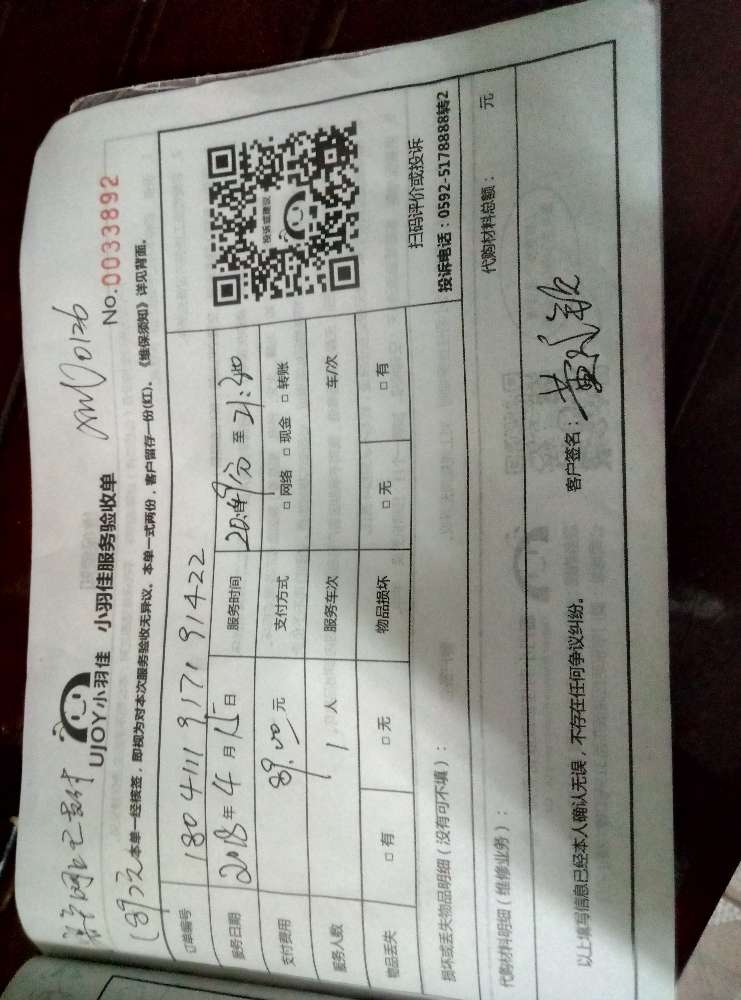 网上已支付
(89元
XM00126
UJOY小羽佳 小羽佳服务验收单
No.0033892
本单一经核签，即视为对本次服务验收无异议。本单一式两份，客户留存一份(红)。《维保须知》详见背面。
订单编号 180411191719 1422
服务日期 2018年4月15日 服务时间 至21:30
支付费用 89.00元 支付方式 □网络 □现金 □转账
服务人数 1人 服务车次 车/次
物品丢失 □有 □无 物品损坏 □无 □有
投诉或建议
扫码评价或投诉
投诉电话：0592-5178888转2
损坏或丢失物品明细（没有可不填）：
代购材料明细（维修业务）： 代购材料总额： 元
以上填写信息已经本人确认无误，不存在任何争议纠纷。 客户签名：黄